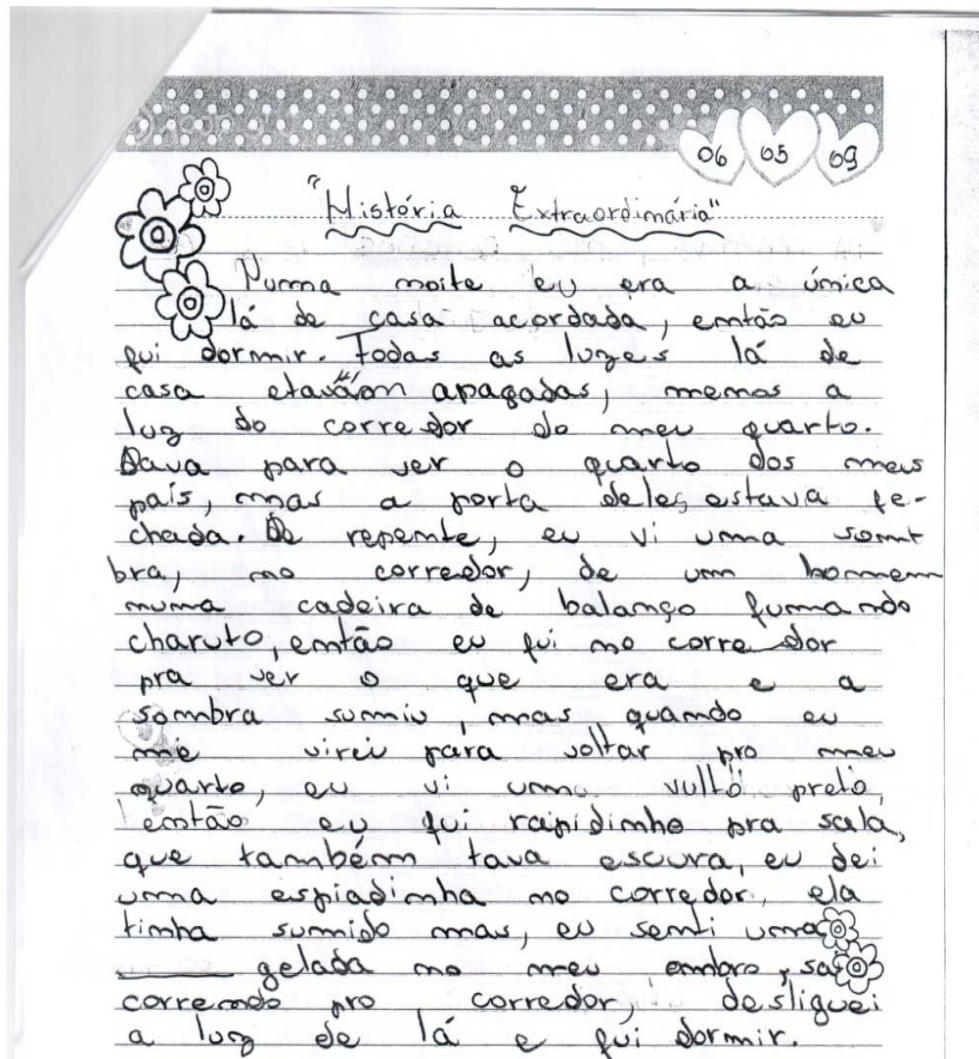 06 05 09
"História Extraordinária"
Numa noite eu era a única
lá de casa acordada, então eu
fui dormir. Todas as luzes lá de
casa etavam apagadas, menos a
luz do corredor do meu quarto.
Dava para ver o quarto dos meus
país, mas a porta deles estava fe-
chada. De repente, eu vi uma som
bra, no corredor, de um homem
numa cadeira de balanço fumando
charuto, então eu fui no corredor
pra ver o que era e a
sombra sumiu, mas quando eu
me virei para voltar pro meu
quarto, eu vi uma vulto preto,
então eu fui rapidinho pra sala,
que também tava escura, eu dei
uma espiadinha no corredor, ela
tinha sumido mas, eu senti uma
gelada no meu ombro, saí
correndo pro corredor, desliguei
a luz de lá e fui dormir.